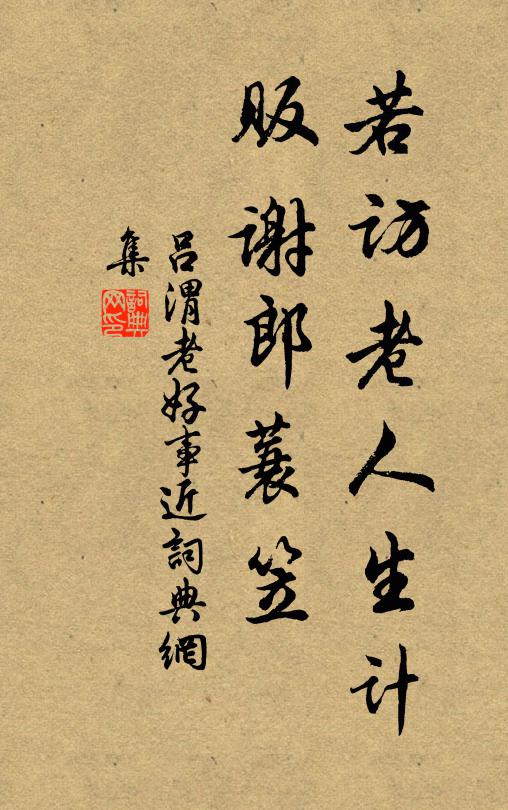 若访老人生计
贩谢郎蓑笠
吕渭老好事近詞典網
集
詞典
网印